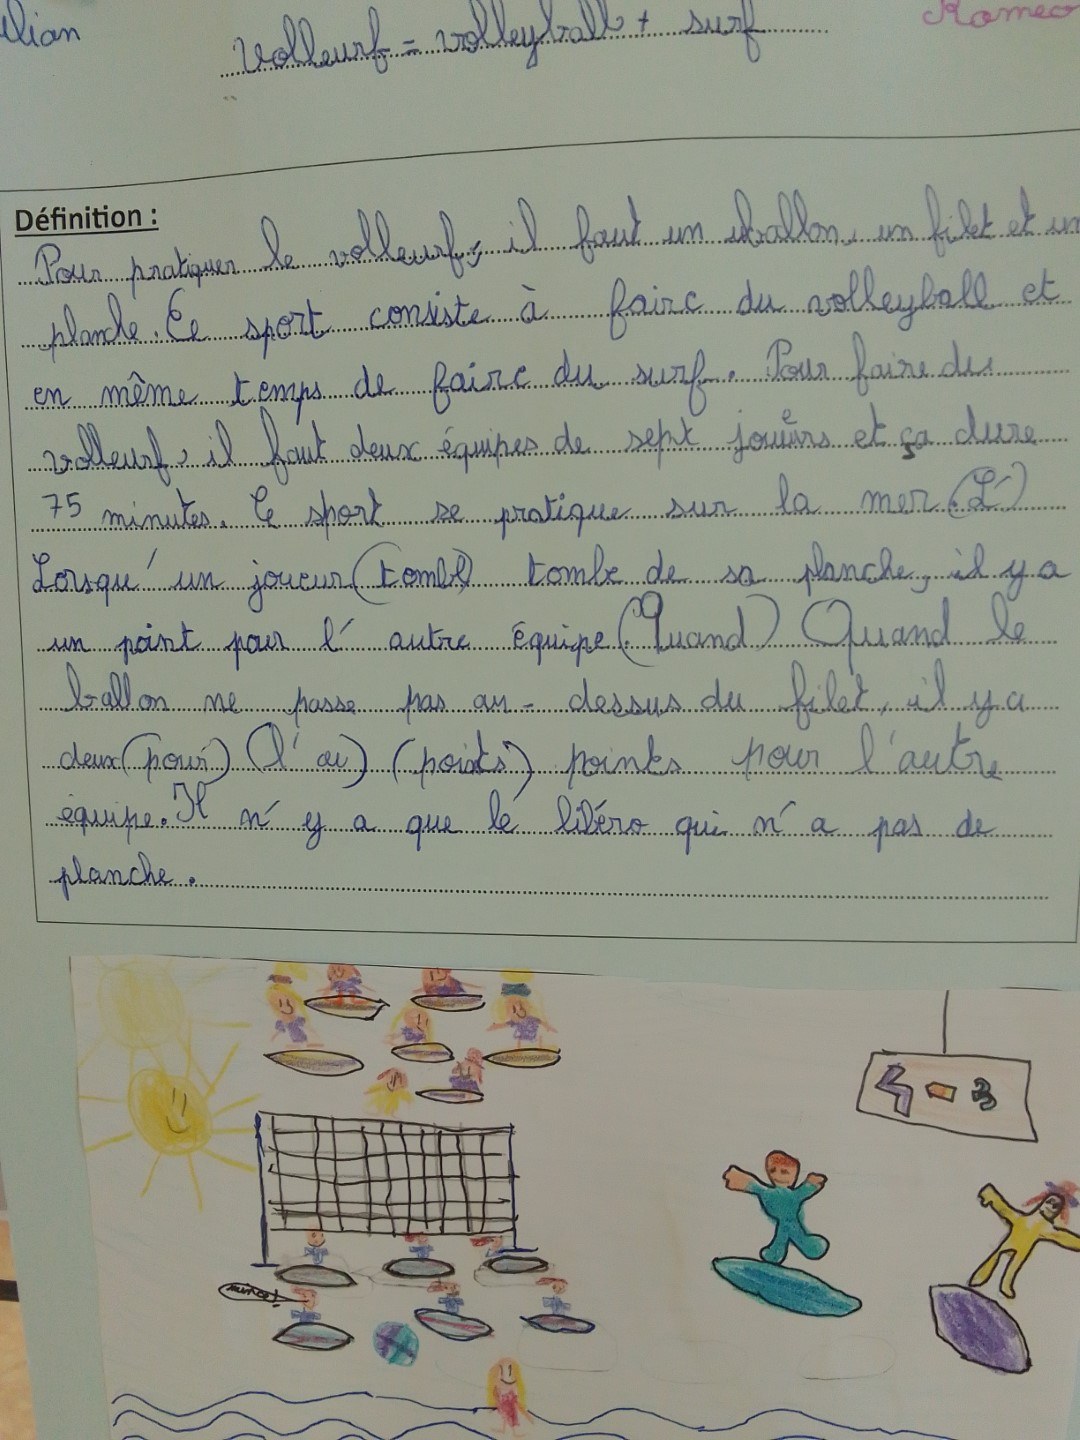 lian
Roméo
Volleurf = volleyball + surf
Définition :
Pour pratiquer le volleurf, il faut un ballon, un filet et un
planche. Ce sport consiste à faire du volleyball et
en même temps de faire du surf. Pour faire du
volleurf, il faut deux équipes de sept joueurs et ça dure
75 minutes. Ce sport se pratique sur la mer (L')
Lorsqu'un joueur (tombe) tombe de sa planche, il y a
un point pour l'autre équipe (. Quand) Quand le
ballon ne passe pas au-dessus du filet, il y a
deux (pour) (l'au) (points) points pour l'autre
équipe. Il n'y a que le libéro qui n'a pas de
planche.
5 - 3
mince!